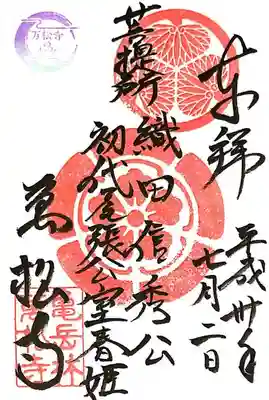 奉拝
平成卅年
七月二日
菩提所 織田信秀公
初代尾張公室春姫
萬松寺
亀岳林
萬松寺
万松寺